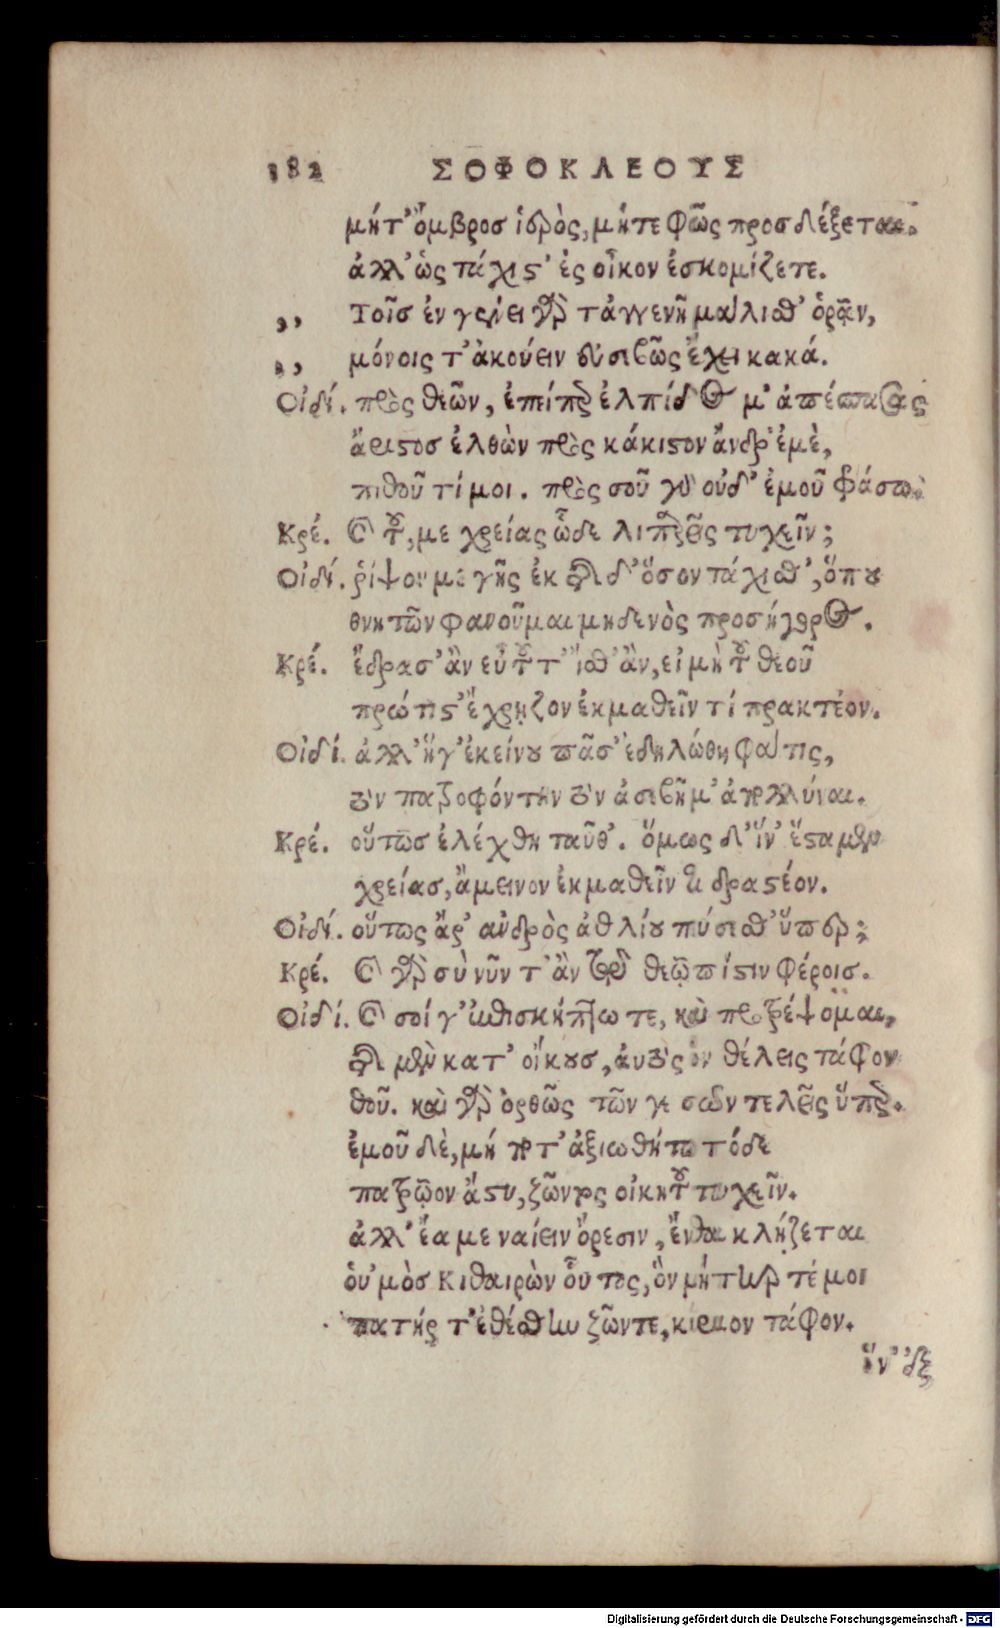 182 ΣΟΦΟΚΛΕΟΥΣ
μήτ' ὄμβροσ ἱερὸς, μήτε φῶς προσδέξεται.
ἀλλ' ὡς τάχιστ' ἐς οἶκον ἐσκομίζετε.
,, Τοῖσ ἐν γένει γὰρ τἀγγενῆ μάλισθ' ὁρᾶν,
,, μόνοις τ' ἀκούειν εὐσεβῶς ἔχει κακά.
Οἰδί. πρὸς θεῶν, ἐπείπερ ἐλπίδος μ' ἀπέσπασας
ἄριστοσ ἐλθὼν πρὸς κάκιστον ἄνδρ' ἐμὲ,
πιθοῦ τί μοι. πρὸς σοῦ γὰρ οὐδ' ἐμοῦ φράσω.
Κρέ. καὶ τοῦ, με χρείας ὧδε λιπαρεῖς τυχεῖν;
Οἰδί. ῥίψον με γῆς ἐκ τῆσδ' ὅσον τάχισθ', ὅπου
θνητῶν φανοῦμαι μηδενὸς προσήγορος.
Κρέ. ἔδρασ' ἂν εὖ τοῦτ' ἴσθ' ἂν, εἰ μὴ τοῦ θεοῦ
πρώτιστ' ἔχρῃζον ἐκμαθεῖν τί πρακτέον.
Οἰδί. ἀλλ' ἥγ' ἐκείνου πᾶσ' ἐδηλώθη φάτις,
τὸν πατροφόντην τὸν ἀσεβῆ μ' ἀπολλύναι.
Κρέ. οὕτωσ ἐλέχθη ταῦθ'. ὅμως δ' ἵν' ἕσταμεν
χρείασ, ἄμεινον ἐκμαθεῖν τί δραστέον.
Οἰδί. οὕτως ἄρ' ἀνδρὸς ἀθλίου πεύσεσθ' ὕπερ;
Κρέ. καὶ γὰρ σὺ νῦν τ' ἂν τῷ θεῷ πίστιν φέροισ.
Οἰδί. καὶ σοί γ' ἐπισκήπτω τε, καὶ προτρέψομαι,
τῆς μὲν κατ' οἴκουσ, αὐτὸς ὃν θέλεις τάφον
θοῦ. καὶ γὰρ ὀρθῶς τῶν γε σῶν τελεῖς ὕπερ.
ἐμοῦ δὲ, μή ποτ' ἀξιωθήτω τόδε
πατρῷον ἄστυ, ζῶντος οἰκητοῦ τυχεῖν.
ἀλλ' ἔα με ναίειν ὄρεσιν, ἔνθα κλῄζεται
οὑμὸσ Κιθαιρὼν οὗτος, ὃν μήτηρ τέ μοι
πατήρ τ' ἐθέσθην ζῶντε, κύριον τάφον.
ἵν' ἐξ
Digitalisierung gefördert durch die Deutsche Forschungsgemeinschaft - DFG